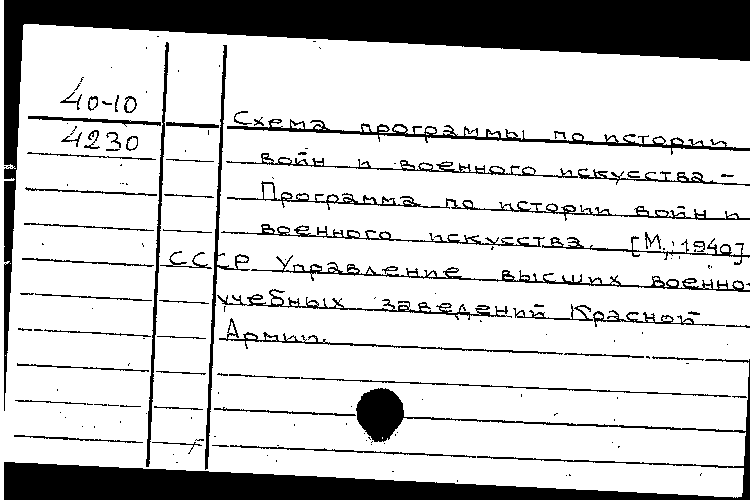 40-10
4230
Схема программы по истории
войн и военного искусства. –
Программа по истории войн и
военного искусства. [М., 1940]
СССР Управление высших военно-
учебных заведений Красной
Армии.